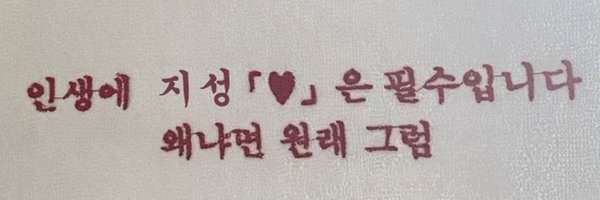 인생에 지성「♥」은 필수입니다
왜냐면 원래 그럼